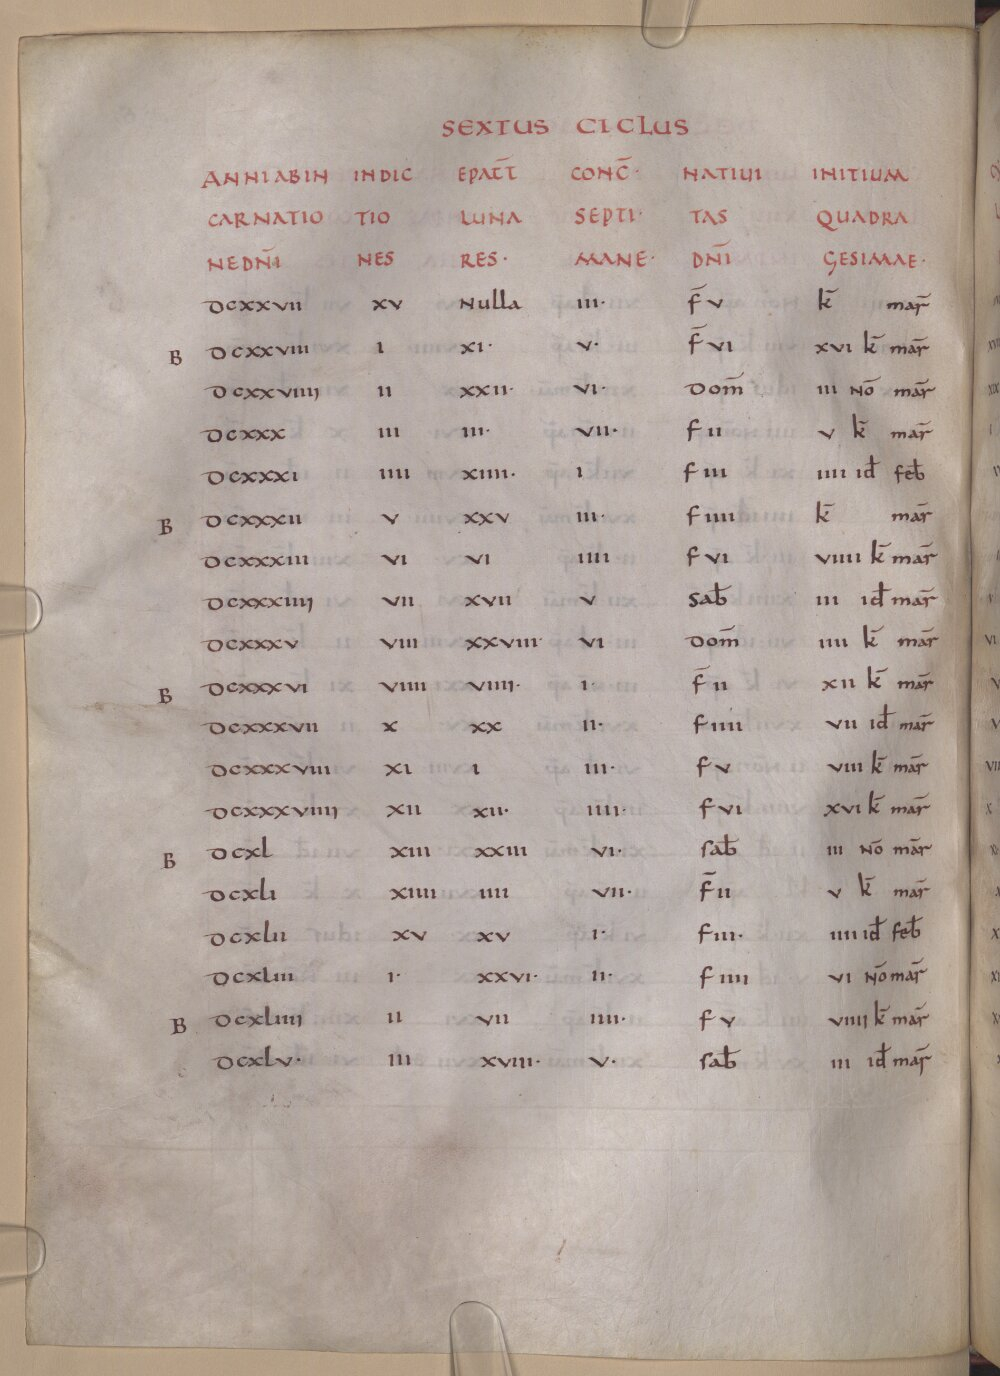 SEXTUS CICLUS
ANNI AB IN INDIC EPACT̄ CONC̄· NATIUI INITIUM
CARNATIO TIO LUNA SEPTI· TAS QUADRA
NE DN̄I NES RES· MANE· DN̄I GESIMAE·
DCXXVII XV Nulla III· F̄ V k̄ mar̄
B DCXXVIII I XI· V· F̄ VI XVI k̄ mar̄
DCXXVIIII II XXII· VI· Dom̄ III NŌ mar̄
DCXXX III III· VII· F II V k̄ mar̄
DCXXXI IIII XIIII· I F III IIII id̄ feb̄
B DCXXXII V XXV III· F IIII k̄ mar̄
DCXXXIII VI VI IIII F VI VIIII k̄ mar̄
DCXXXIIII VII XVII V Sab̄ III id̄ mar̄
DCXXXV VIII XXVIII· VI Dom̄ IIII k̄ mar̄
B DCXXXVI VIIII VIIII· I· F̄ II XII k̄ mar̄
DCXXXVII X XX II· F IIII VII id̄ mar̄
DCXXXVIII XI I III· F V VIII k̄ mar̄
DCXXXVIIII XII XII· IIII· F VI XVI k̄ mar̄
B DCXL XIII XXIII VI· Sab̄ III NŌ mar̄
DCXLI XIIII IIII VII· F̄ II V k̄ mar̄
DCXLII XV XV I· F III· IIII id̄ feb̄
DCXLIII I· XXVI· II· F IIII VI NŌ mar̄
B DCXLIIII II VII IIII· F V VIIII k̄ mar̄
DCXLV· III XVIII· V· Sab̄ III id̄ mar̄